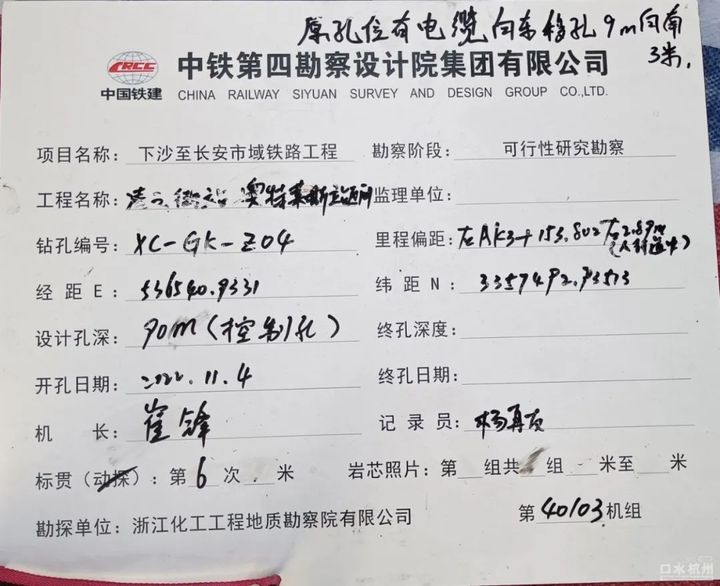 原孔位有电缆向东移孔9m向南
3米.
CRCC
中国铁建
中铁第四勘察设计院集团有限公司
CHINA RAILWAY SIYUAN SURVEY AND DESIGN GROUP CO.,LTD.
项目名称: 下沙至长安市域铁路工程 勘察阶段: 可行性研究勘察
工程名称: 奥特莱斯站区间 监理单位:
钻孔编号: XC-GK-Z04 里程偏距: 右AK3+153.802右2.89m
经距E: 536540.9331 纬距N: 3357492.93573
设计孔深: 90m(控制孔) 终孔深度:
开孔日期: 2022.11.4 终孔日期:
机 长: 崔锋 记录员: 杨再友
标贯(动探): 第6次 米 岩芯照片: 第 组共 组 米至 米
勘探单位: 浙江化工工程地质勘察院有限公司 第40103机组
口水杭州